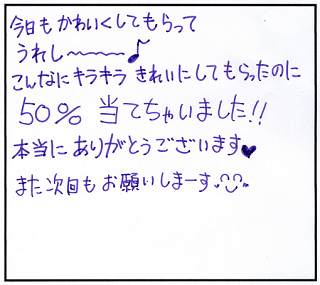 今日もかわいくしてもらって
うれし〜〜〜♪
こんなにキラキラきれいにしてもらったのに
50% 当てちゃいました!!
本当にありがとうございます♥
また次回もお願いしまーす。